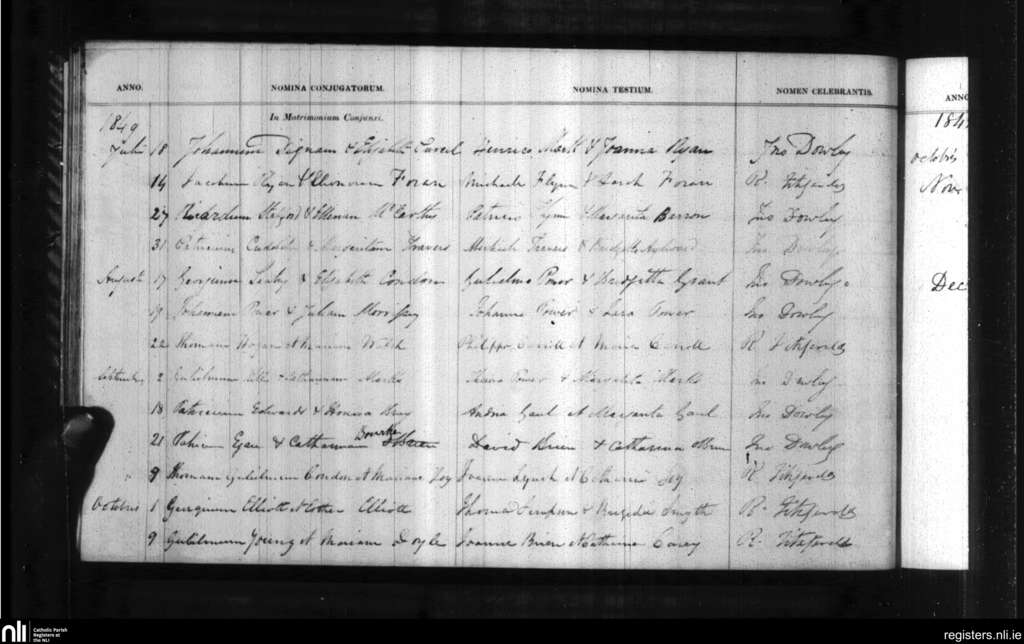 ANNO. NOMINA CONJUGATORUM. NOMINA TESTIUM. NOMEN CELEBRANTIS.
In Matrimonium Conjunxi.
1849
Julii 18 Johannem Dignam & Elizabeth Henrico Mark & Joanna Ryan Jno Dowley
14 Jacobum Ryan & Elenoram Foran Michaele Flynn & Sarah Foran R. Fitzgerald
27 Ricardum & Ellenam McCarthy Patricio Flynn & Margarita Barron Jno Dowley
31 Patricium & Margaritam Travers Michaele Travers & Jno Dowley
Augusti 17 Georgium Leahy & Elizabeth Condon Gulielmo Power & Bridgitta Grant Jno Dowley
19 Johannem Power & Juliam Morrissey Johanne Power & Power Jno Dowley
22 Thomam Hogan et Mariam Walsh Philippo Carroll et Maria Carroll R. Fitzgerald
Septembris 2 Gulielmum & Catharinam Marks Power & Margarita Marks Jno Dowley
18 Patricium Edwards & Honora Bray Andrea Gaul et Margarita Gaul Jno Dowley
21 Patricium Egan & Catharinam Bourke David Brien & Catharina OBrien Jno Dowley
" 9 Thomam Gulielmum Condon et Mariam Joanne Lynch et Catharina R. Fitzgerald
Octobris 1 Georgium Elliott et Esther Elliott Thoma Simpson & Brigida Smyth R. Fitzgerald
9 Gulielmum Young et Mariam Doyle Joanne Brien et Catharina Carey R. Fitzgerald
ANNO
184
Octobris
Nov
Dec
nli Catholic Parish Registers at the NLI
registers.nli.ie